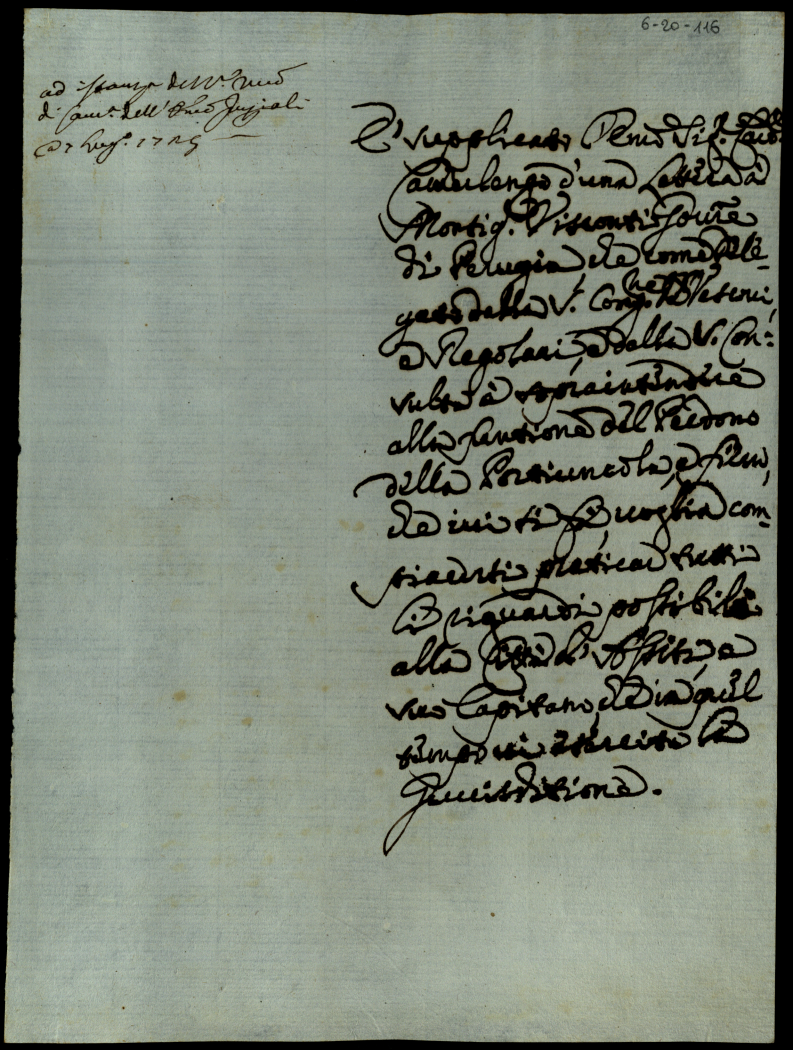 6-20-116
ad istanza dell'
di Cam.ª dell' Imperiali
a 7 lug.º 1725
È supplicato l'Emo Sig.r Card.
Camerlengo d'una lettera à
Monsig.r Visconti Gov.re
di Perugia, che come Dele-
gato della S. Cong.ne de Vescovi,
e Regolari, e della S. Con-
sulta à sopraintendere
alla funtione del Perdono
della Portiuncola, e fiera,
che ivi si fà, voglia com-
piacersi praticar tutti
li riguardi possibili
alla Città d'Assisi, e
suo Capitano, che in quel
tempo vi esercita la
Giurisditione.